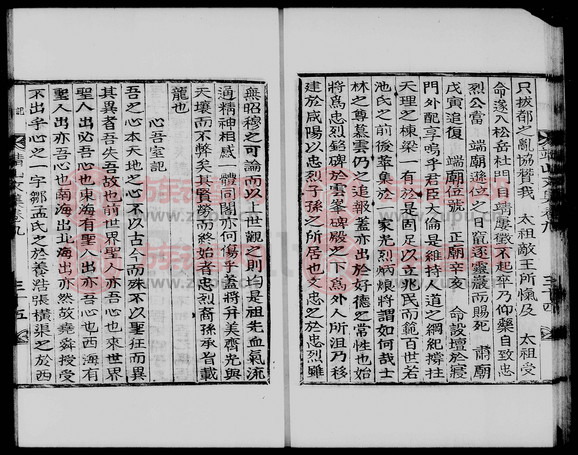 只拔都之亂協贊我 太祖敵王所愾及 太祖受
命遂入松岳杜門目靖屢徵不起卒乃仰藥自致忠
烈公當 端廟遜位之日罵逆靈嚴而賜死 肅廟
戊寅追復 端廟位號 正廟辛亥 命設壇於寢
門外配享嗚乎君臣大倫是維持人道之綱紀撐拄
天理之棟梁一有於是固足以立兆民而範百世若
池氏之前後萃集於一家光烈炳炳將謂如何哉士
林之尊慕雲仍之追報蓋亦出於好德之常性也始
將爲忠烈銘碑於雲峯碑殿之下爲外人所沮乃移
建於咸陽以忠烈子孫之所居也文忠之於忠烈雖
無昭穆之可論而以上世觀之則均是祖先血氣流
通精神相感一體同閣亦何傷乎蓋將幷美齊光與
天壤而不弊矣其賢勞而終始者忠烈裔孫承省載
龍也
心吾室記
吾之心本天地之心不以古今而殊不以聖狂而異
其異者吾失吾故也前世界聖人亦吾心也來世界
聖人出必吾心也東海有聖人出亦吾心也西海有
聖人出亦吾心也南海出北海出亦然故堯舜授受
不出乎心之一字鄒孟氏之於養浩張橫渠之於西
記
三十五